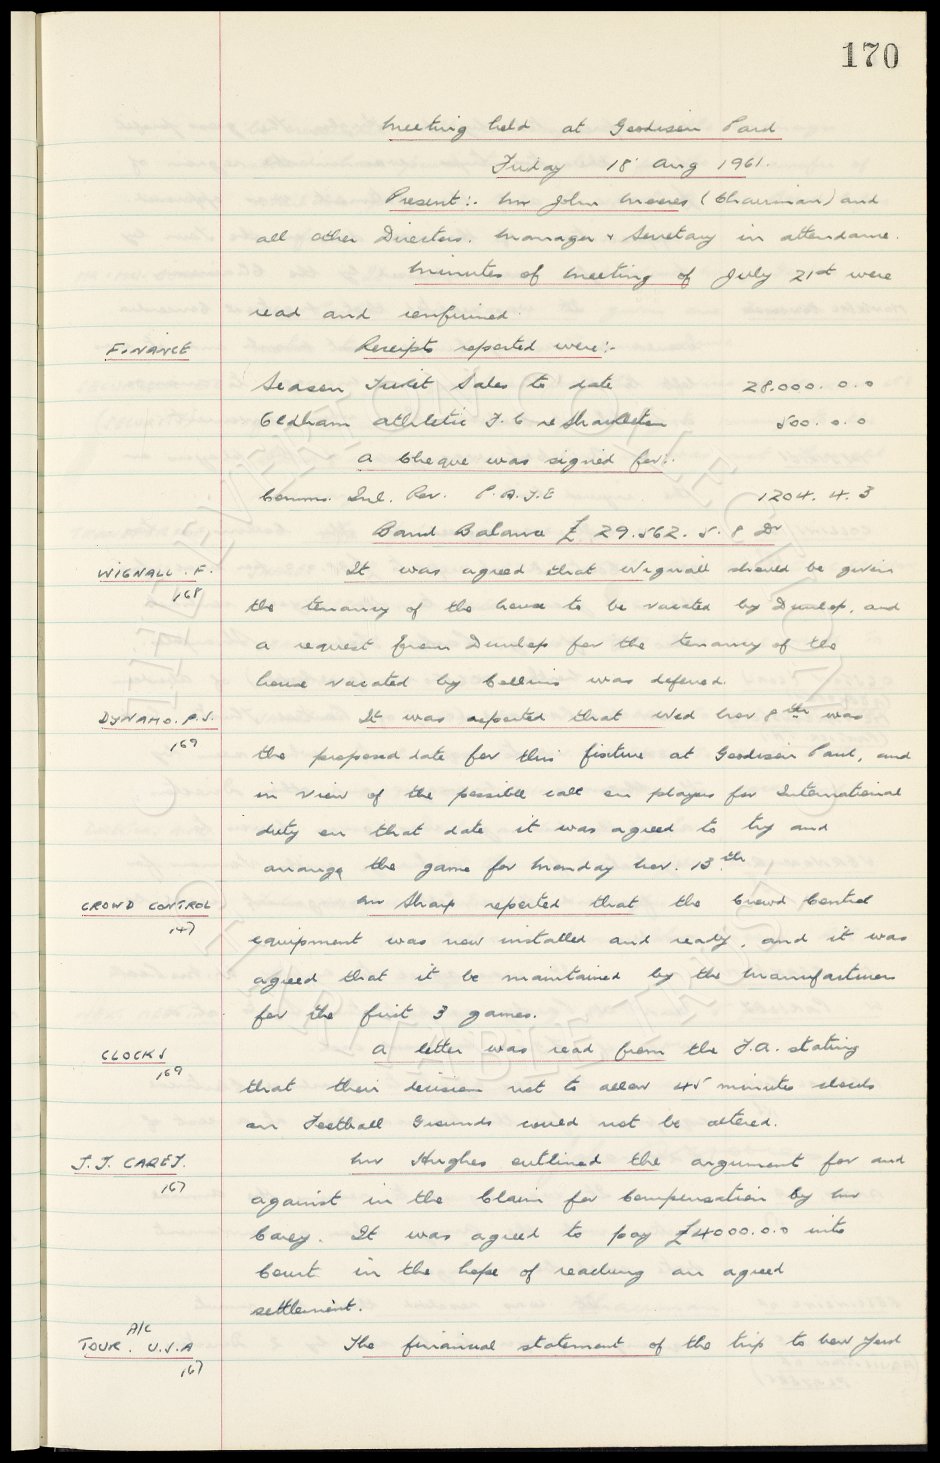 170
Meeting held at Goodison Park
Friday 18 Aug 1961.
Present:- Mr John Moores (Chairman) and
all other Directors. Manager & Secretary in attendance.
Minutes of Meeting of July 21st were
read and confirmed.
FINANCE
Receipts reported were:-
Season Ticket Sales to date 28.000. 0. 0
Oldham Athletic F.C re Shackleton 500. 0. 0
A Cheque was signed for:-
Comms. Inl. Rev. P.A.Y.E 1204. 4. 3
Bank Balance £ 29.562. 5. 8 Dr
WIGNALL. F.
168
It was agreed that Wignall should be given
the tenancy of the house to be vacated by Dunlop, and
a request from Dunlop for the tenancy of the
house vacated by Collins was deferred.
DYNAMO. P.S.
169
It was reported that Wed Nov 8th was
the proposed date for this fixture at Goodison Park, and
in view of the possible call on players for International
duty on that date it was agreed to try and
arrange the game for Monday Nov. 13th.
CROWD CONTROL
147
Mr Sharp reported that the Crowd Control
equipment was now installed and ready, and it was
agreed that it be maintained by the Manufacturers
for the first 3 games.
CLOCKS
169
A letter was read from the F.A. stating
that their decision not to allow 45 minutes clocks
on Football Grounds could not be altered.
J. J. CAREY.
167
Mr Hughes outlined the argument for and
against in the Claim for Compensation by Mr
Carey. It was agreed to pay £4000.0.0 into
Court in the hope of reaching an agreed
settlement.
A/C
TOUR. U.S.A
167
The financial statement of the trip to New York